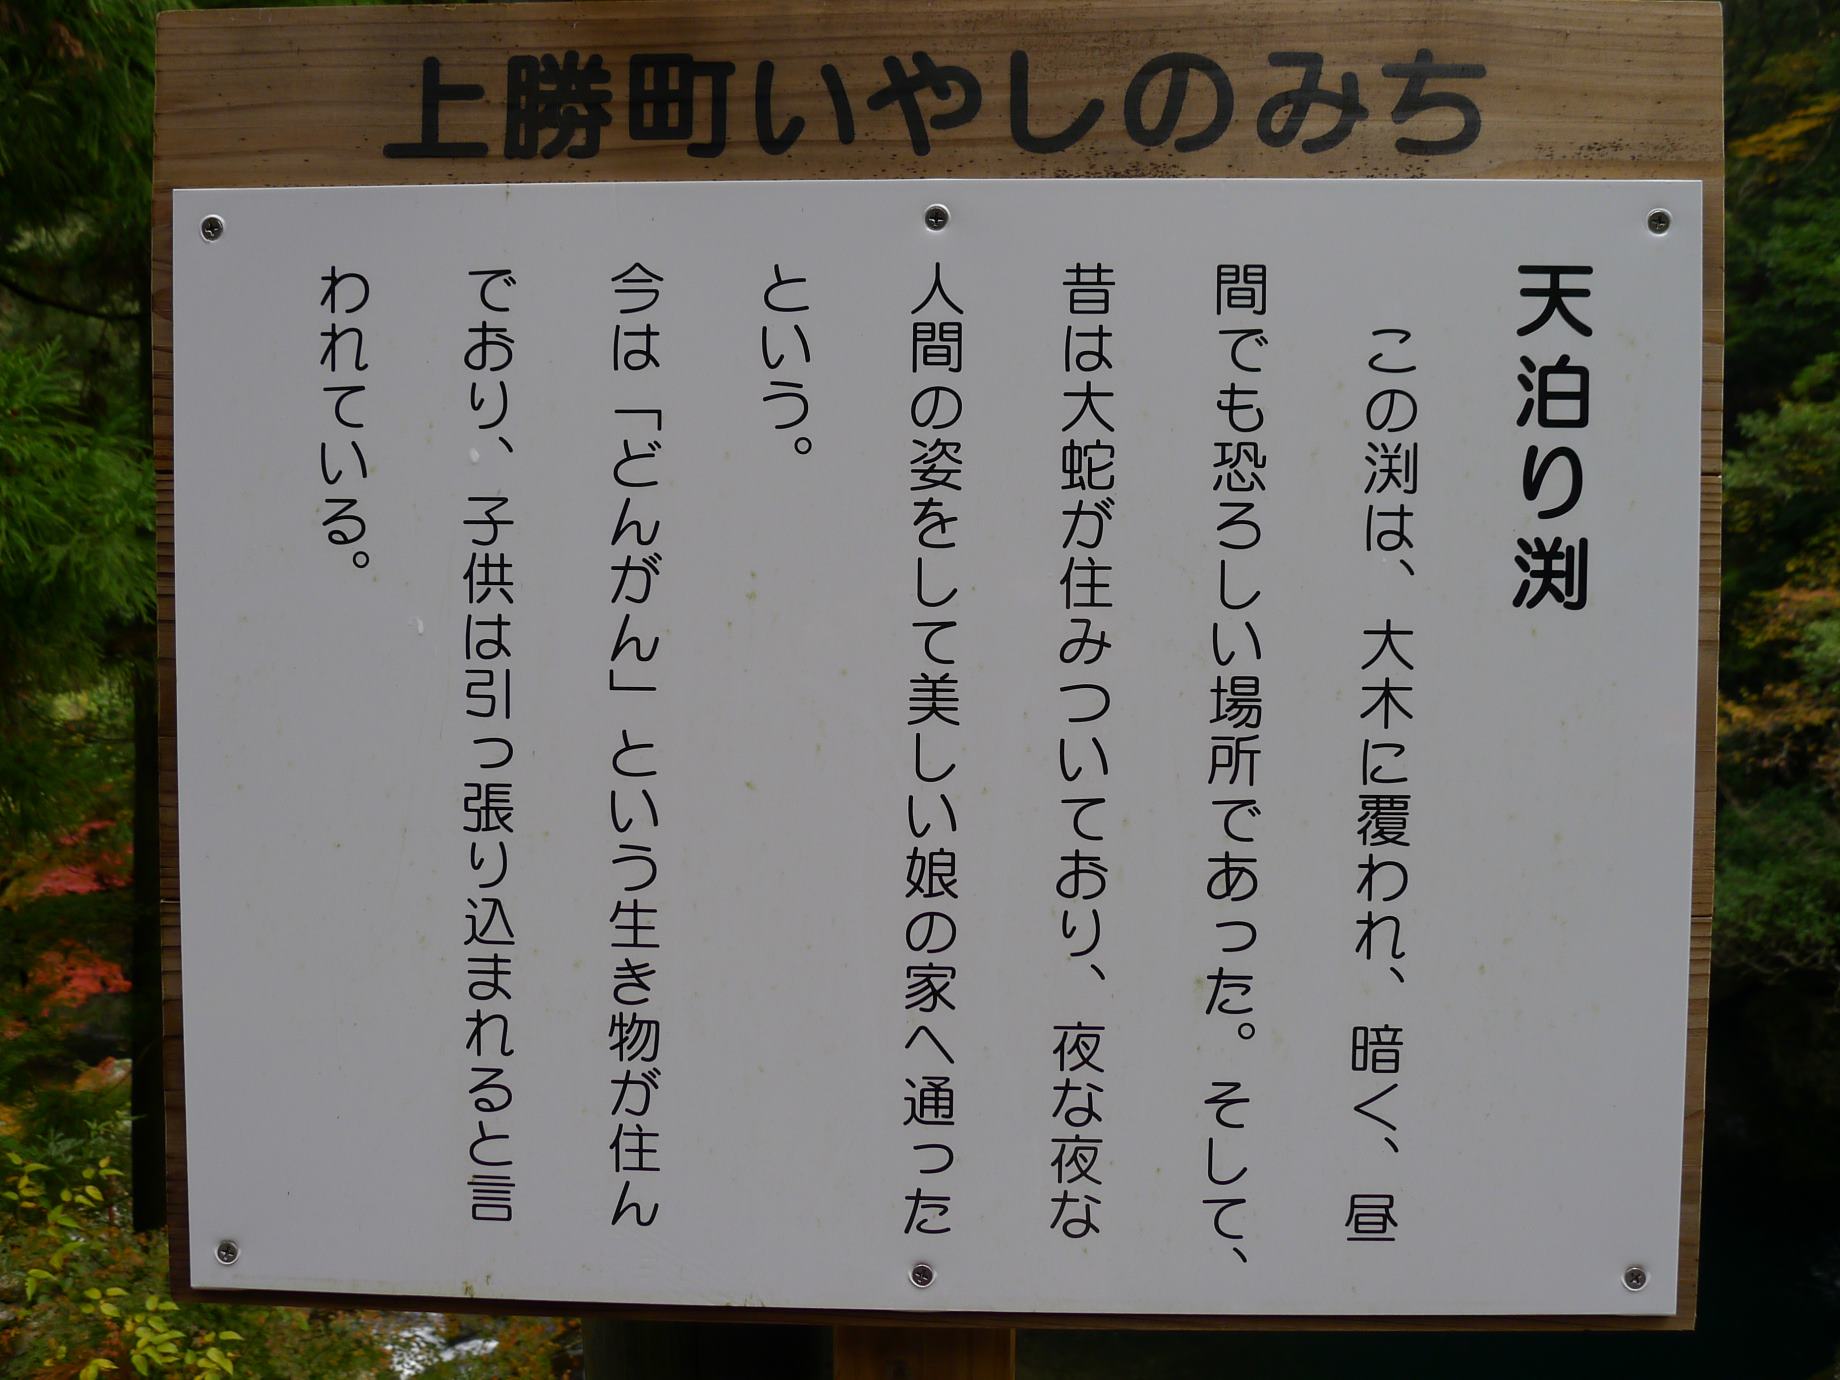 上勝町いやしのみち
天泊り渕
この渕は、大木に覆われ、暗く、昼
間でも恐ろしい場所であった。そして、
昔は大蛇が住みついており、夜な夜な
人間の姿をして美しい娘の家へ通った
という。
今は「どんがん」という生き物が住ん
でおり、子供は引っ張り込まれると言
われている。